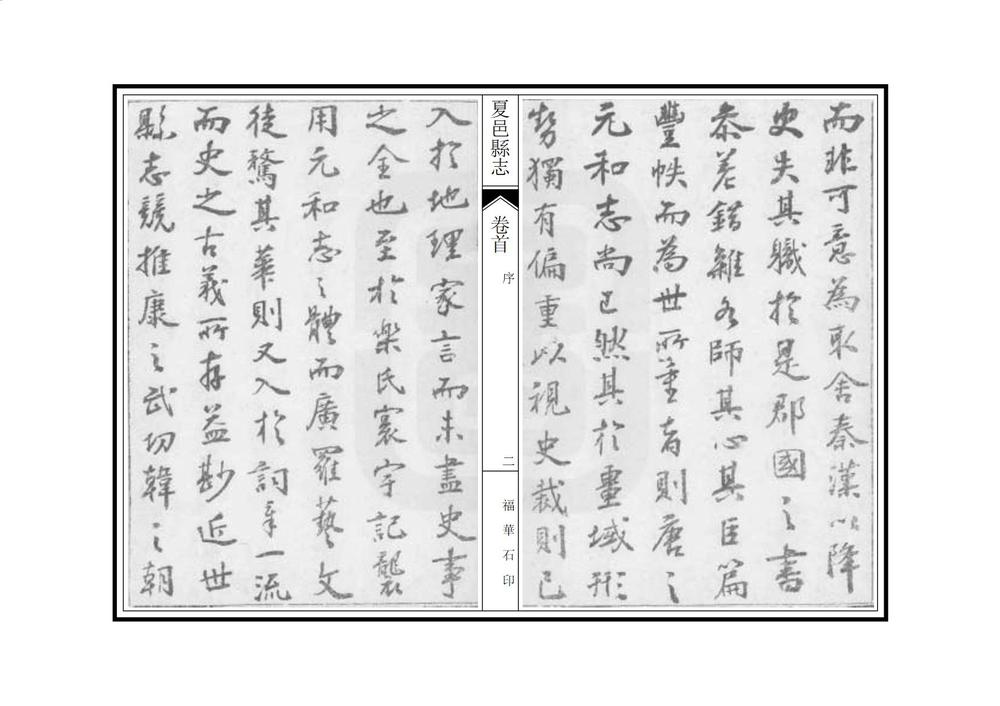 而非可意為取舍秦漢以降
史失其職於是郡國之書
參差錯雜各師其心其臣篇
豐帙而為世所重者則唐之
元和志尚已然其於畺域形
勢獨有偏重以視史裁則已
夏邑縣志
卷首
序
二
福華石印
入於地理家言而未盡史事
之全也至於樂氏寰宇記襲
用元和志之體而廣羅藝文
徒騖其華則又入於詞章一流
而史之古義所存益尠近世
縣志競推康之武功韓之朝